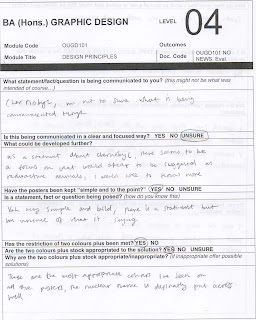 BA (Hons.) GRAPHIC DESIGN
LEVEL 04
Module Code OUGD101 Outcomes
Module Title DESIGN PRINCIPLES Doc. Code OUGD101 NO NEWS. Eval
What statement/fact/question is being communicated to you? (this might not be what was intended of course...)
not to sure what is being
communicated though
Is this being communicated in a clear and focused way? YES NO UNSURE
What could be developed further?
as a statement about chernobyl, there seems to be
a focus on
radioactive animals, I would like to know more
Have the posters been kept "simple and to the point"? YES NO UNSURE
Is a statement, fact or question being posed? (how do you know this)
Yeh very simple and bold, there is a statement but
im unsure of what it saying
Has the restriction of two colours plus been met? YES NO
Are the two colours plus stock appropriated to the solution? YES NO UNSURE
Why are the two colours plus stock appropriate/inappropriate? (if inappropriate offer possible solutions)
These are the most appropriate colours ive seen on
all the posters, the nuclear theme is definatly put across
well